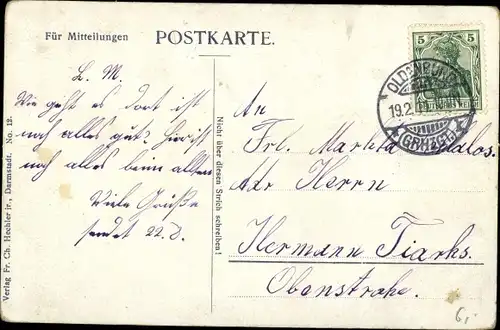 Für Mitteilungen
POSTKARTE.
L. M.
Wie geht es dort ist
noch alles gut? Hier ist
noch alles beim alten
Viele Grüße
sendet
An
Frl. Martha
Adr Herrn
Hermann Tiarks.
Obenstrohe.
Nicht über diesen Strich schreiben!
Verlag Fr. Chr. Hechler jr., Darmstadt. No. 12.
5 5
OLDENBURG
19.2.
GRHZGT.